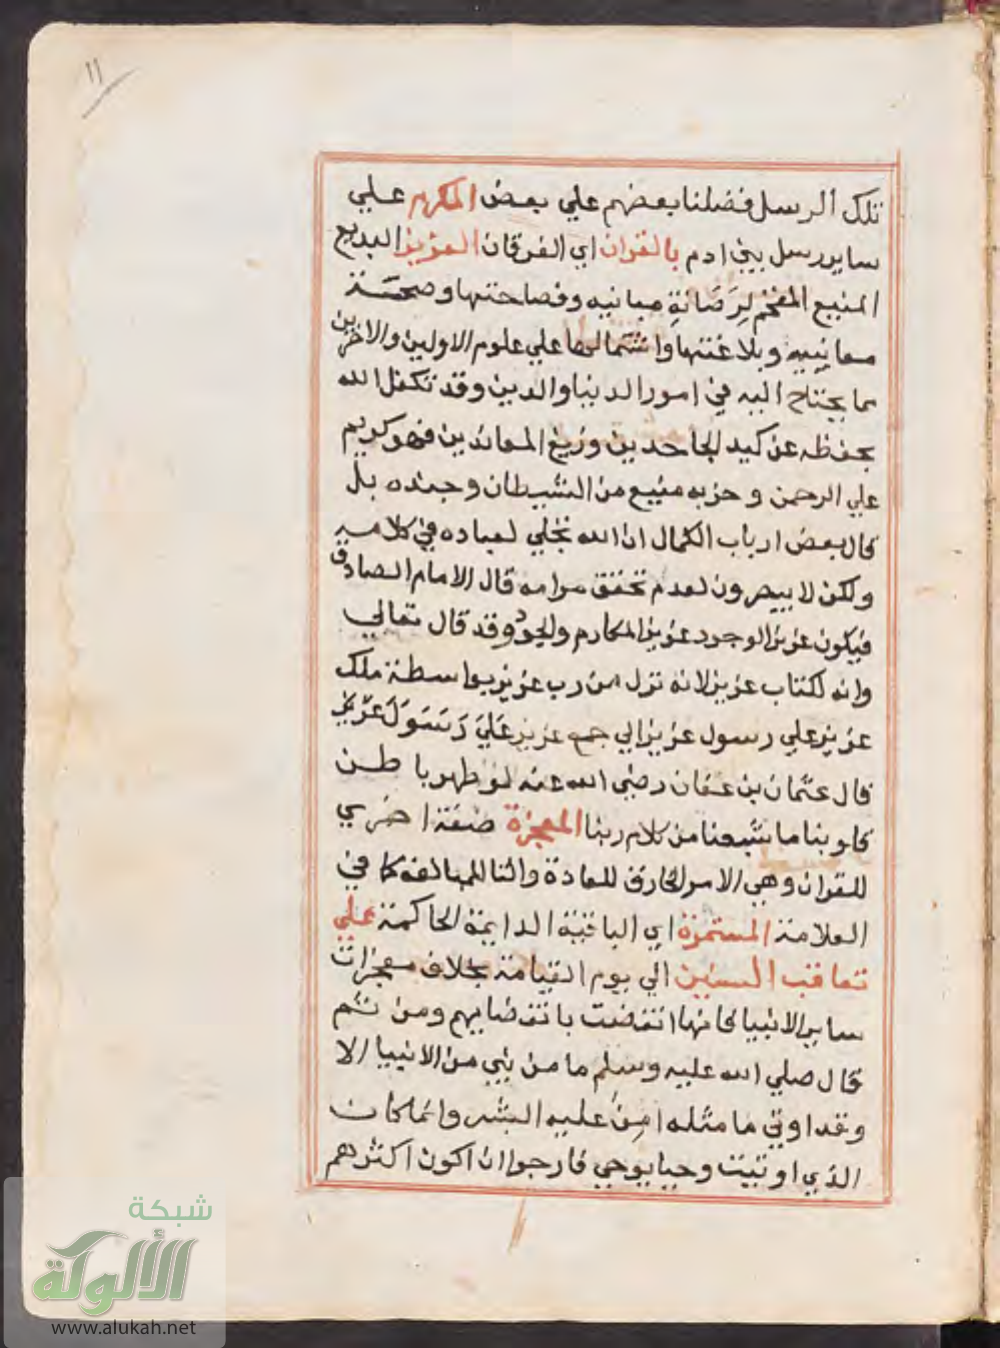 ١١
تلك الرسل فضلنا بعضهم علي بعض المكرم علي
ساير رسل بني ادم بالقران اي الفرقان العزيز البديع
المنيع المفخم لِرَصَانَةِ مبانيه وفصاحتها وصحّة
معانييه وبلاغتها واشتمالها علي علوم الاولين والاخرين
مما يحتاج اليه في امور الدنيا والدين وقد تكفل الله
بحفظه عن كيد الجاحدين وزيغ المعاندين فهو كريم
علي الرحمن وحزبه منيع من الشيطان وجنده بل
قال بعض ارباب الكمال ان الله تجلي لعباده في كلامه
ولكن لا يبصرون لعدم تحقق مرامه قال الامام الصادق
فيكون عزيز الوجود عزيز المكارم والجود وقد قال تعالي
وانه لكتاب عزيز لانه نزل من رب عزيز بواسطة ملك
عزيز علي رسول عزيز الي عزيز عَلَيَ رَسَوَلَ عَزِيز
قال عثمان بن عفان رضي الله عنه لو طهر باطن
قلوبنا ما شبعنا من كلام ربنا المعجزة صفة اخري
للقران وهي الامر الخارق للعادة والتا للمبالغة كما في
العلامة المستمرة اي الباقية الدايمة الحاكمة علي
تعاقب السنين الي يوم القيامة بخلاف معجزات
ساير الانبيا فانها انقضت بانقضايهم ومن ثم
قال صلي الله عليه وسلم ما من نبي من الانبيا الا
وقد اوتي ما مثله امِنَ عليه البشر وانما كان
الذي اوتيت وحيا يوحي فارجوا ان اكون اكثرهم
شبكة
الألوكة
www.alukah.net